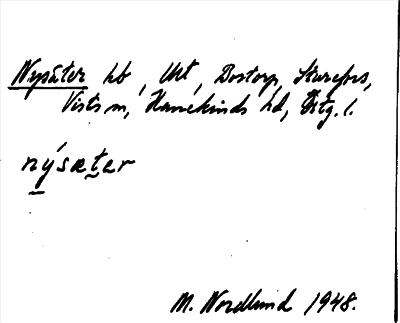 Nysäter hb, Utl, Dostorp, Sturefors,
Vists sn, Hanekinds hd, Östg. l.
nýsæter
M. Nordlund 1948.